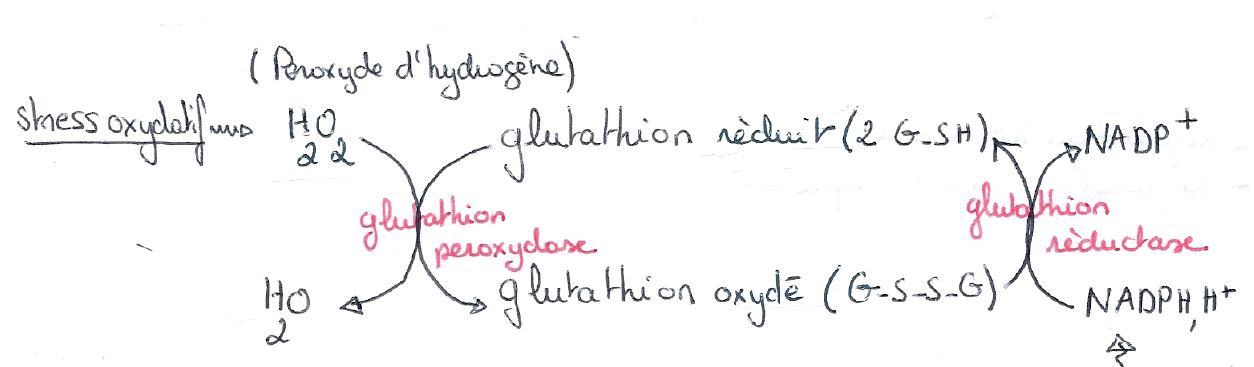 (Peroxyde d'hydrogène)
stress oxydatif H2O2 glutathion rèduit (2 G-SH) NADP+
glutathion peroxydase glutathion rèductase
H2O glutathion oxydé (G-S-S-G) NADPH,H+